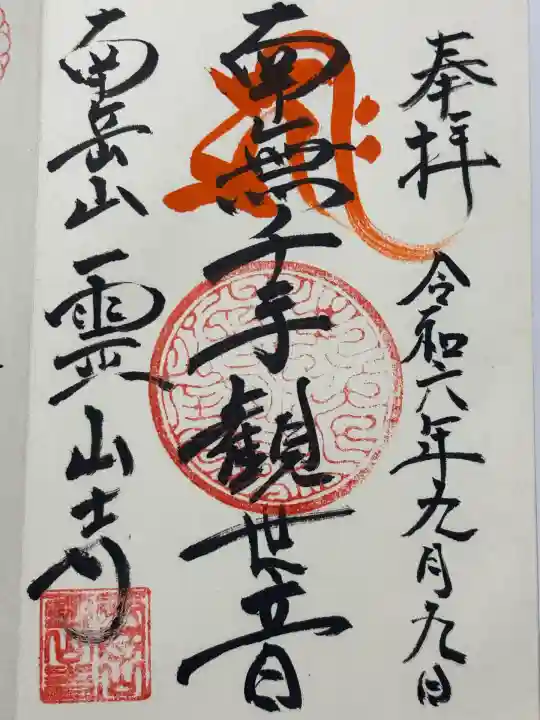 奉拝
令和六年九月九日
南無千手観世音
南岳山
霊山寺